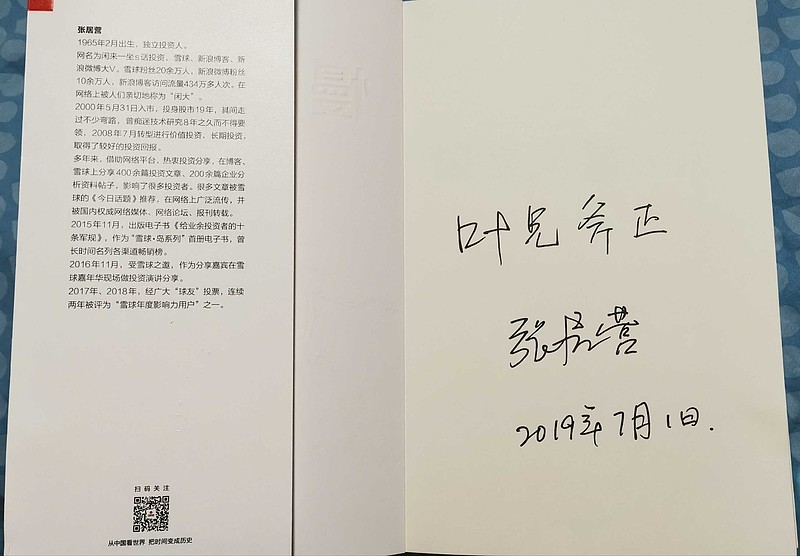 张居营
1965年2月出生，独立投资人。
网名为闲来一坐s话投资，雪球、新浪博客、新
浪微博大V。雪球粉丝20余万人，新浪微博粉丝
10余万人，新浪博客访问流量434万多人次。在
网络上被人们亲切地称为“闲大”。
2000年5月31日入市，投身股市19年，其间走
过不少弯路，曾痴迷技术研究8年之久而不得要
领，2008年7月转型进行价值投资、长期投资，
取得了较好的投资回报。
多年来，借助网络平台，热衷投资分享，在博客、
雪球上分享400余篇投资文章、200余篇企业分
析资料帖子，影响了很多投资者。很多文章被雪
球的《今日话题》推荐，在网络上广泛流传，并
被国内权威网络媒体、网络论坛、报刊转载。
2015年11月，出版电子书《给业余投资者的十
条军规》，作为“雪球·岛系列”首册电子书，曾
长时间名列各渠道畅销榜。
2016年11月，受雪球之邀，作为分享嘉宾在雪
球嘉年华现场做投资演讲分享。
2017年、2018年，经广大“球友”投票，连续
两年被评为“雪球年度影响力用户”之一。
扫码关注
从中国看世界 把时间变成历史
慢
叶兄斧正
张居营
2019年7月1日.